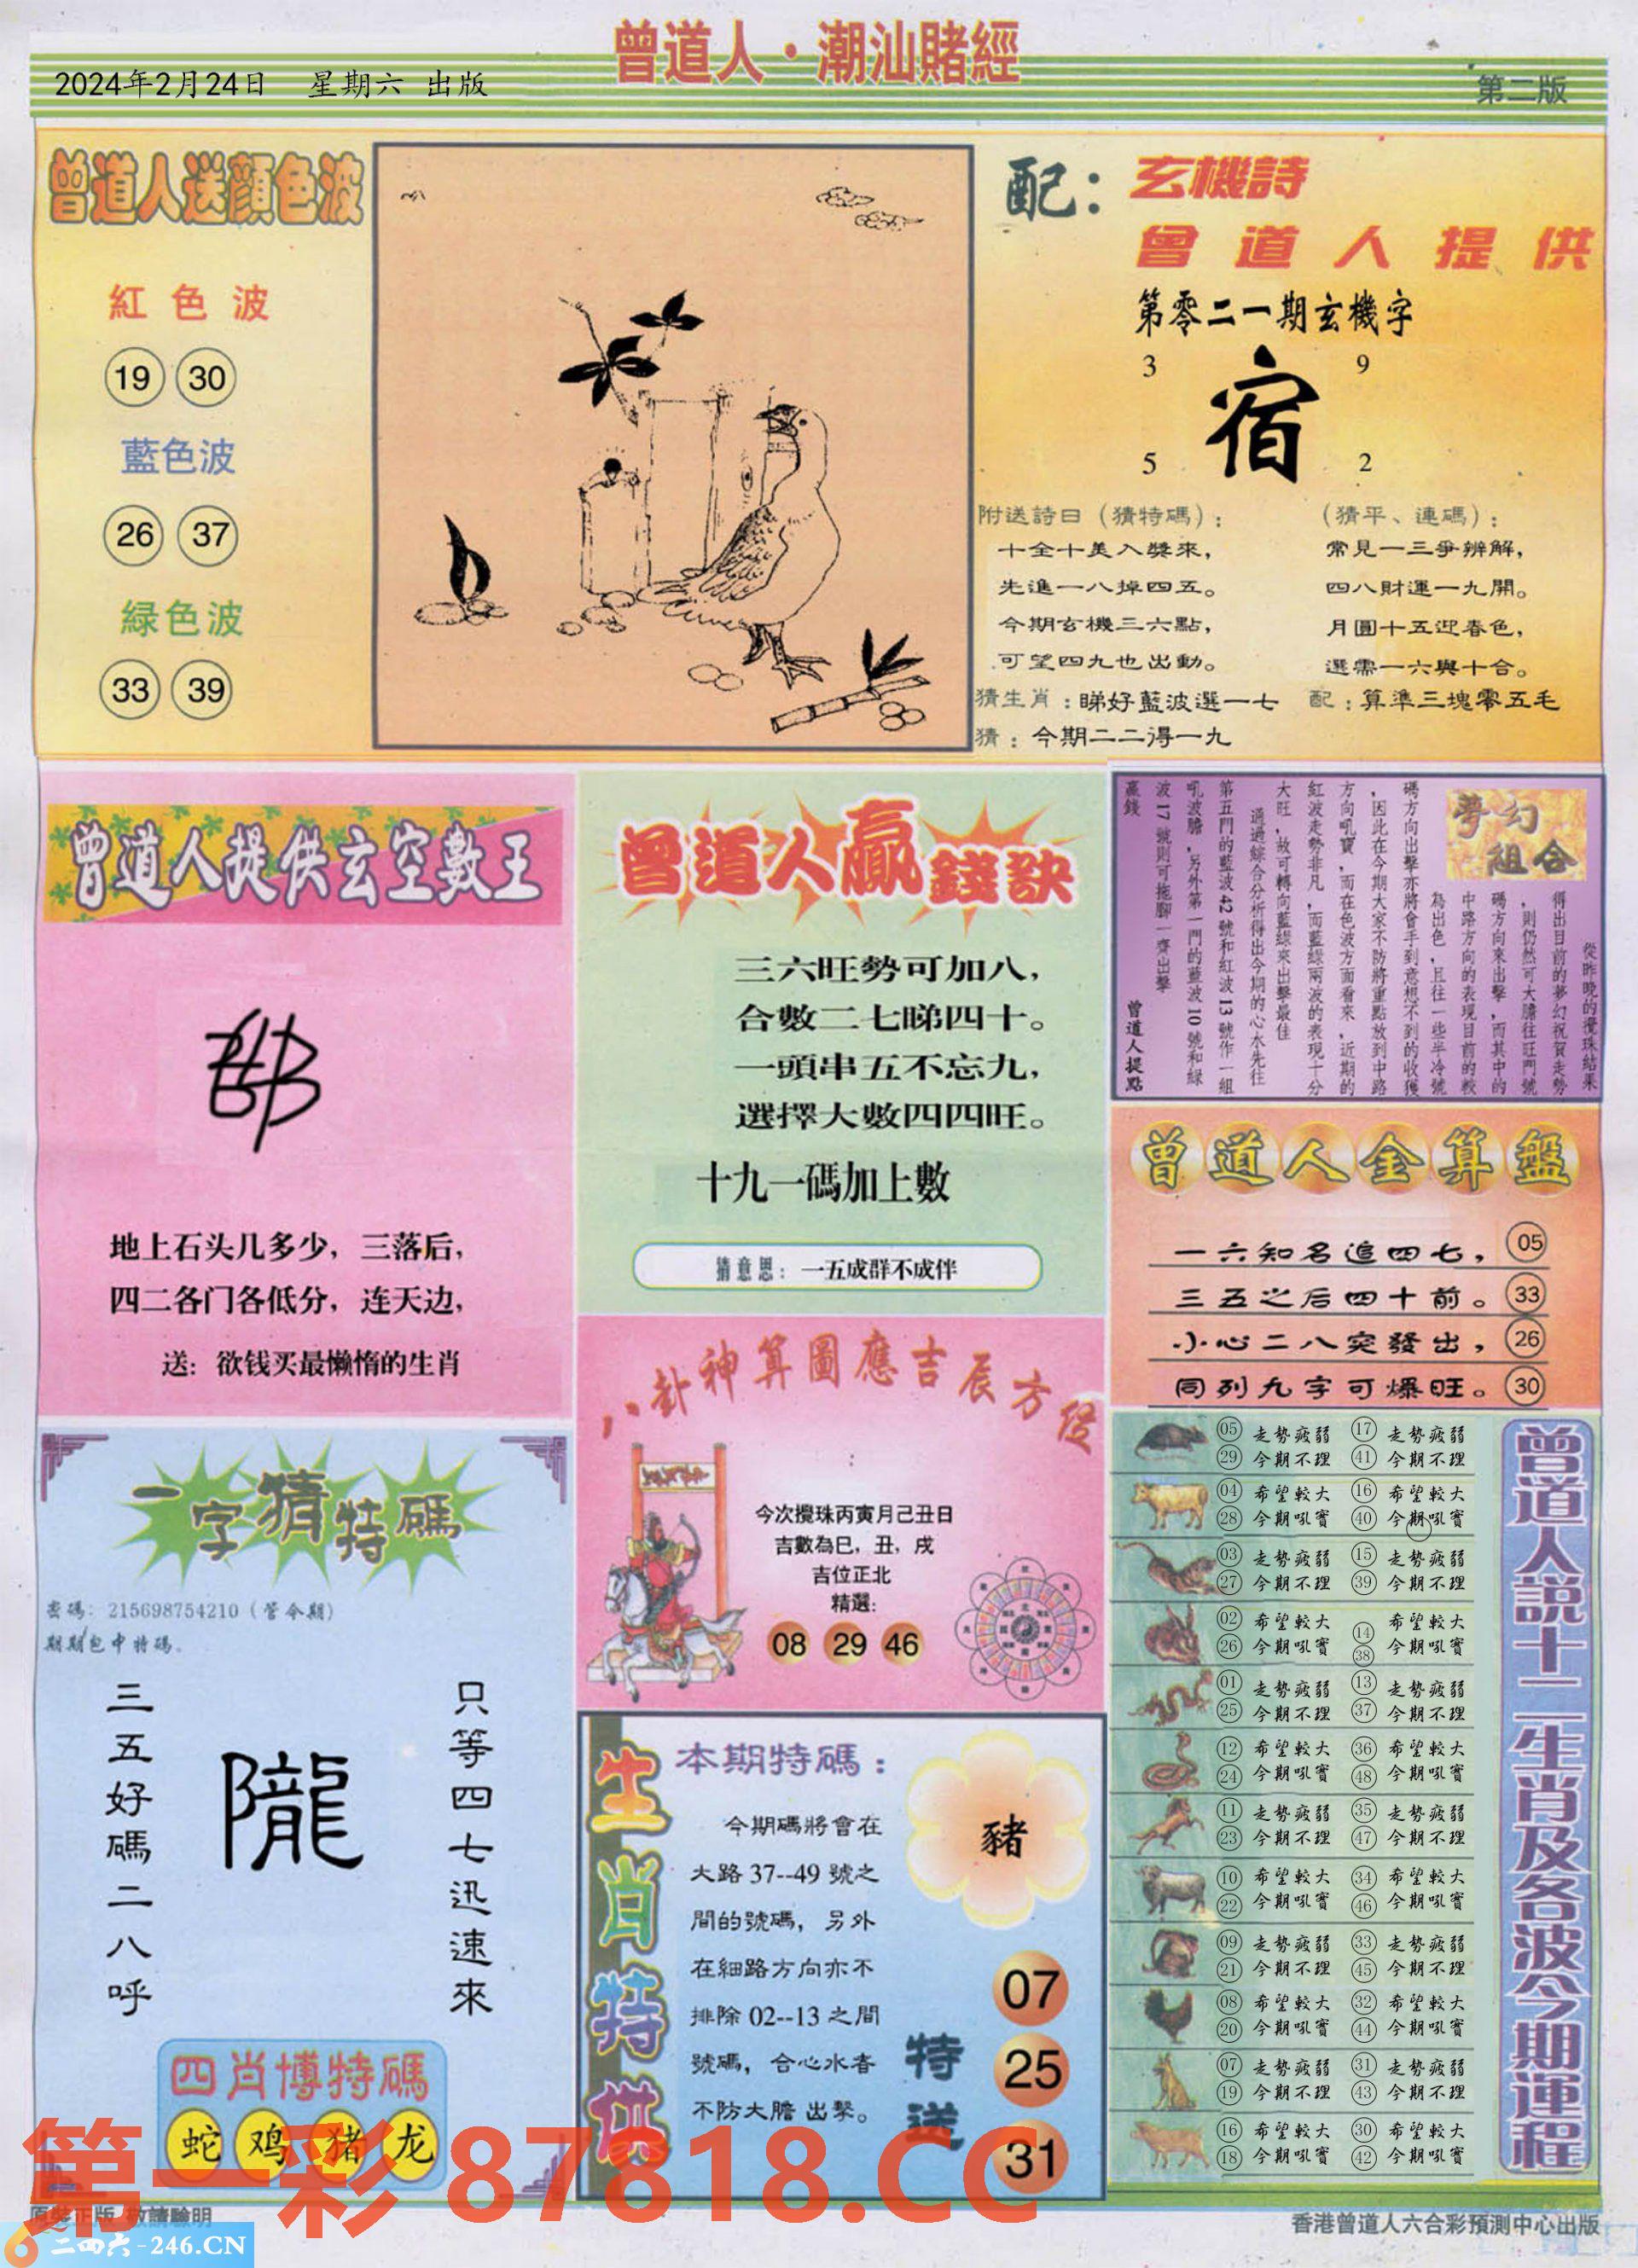 曾道人·潮汕賭經
2024年2月24日 星期六 出版
第二版
曾道人送顔色波
紅色波
19 30
藍色波
26 37
緑色波
33 39
配：
玄機詩
曾道人提供
第零二一期玄機字
3 9
宿
5 2
附送詩曰（猜特碼）：
十全十美入獎來，
先進一八掉四五。
今期玄機三六點，
可望四九也出動。
（猜平、連碼）：
常見一三爭辨解，
四八財運一九開。
月圓十五迎春色，
選需一六與十合。
猜生肖：睇好藍波選一七
配：算準三塊零五毛
猜：今期二二得一九
曾道人提供玄空數王
地上石头几多少，三落后，
四二各门各低分，连天边，
送：欲钱买最懒惰的生肖
曾道人贏錢訣
三六旺勢可加八，
合數二七睇四十。
一頭串五不忘九，
選擇大數四四旺。
十九一碼加上數
猜意思：一五成群不成伴
夢幻組合
從昨晚的攪珠結果
得出目前的夢幻祝賀走勢
，則仍然可大膽往旺門號
碼方向來出擊，而其中的
中路方向的表現目前的較
為出色，且往一些半冷號
碼方向出擊亦將會手到意想不到的收獲
，因此在今期大家不防將重點放到中路
方向吼寶，而在色波方面看來，近期的
紅波走勢非凡，而藍綠兩波的表現十分
大旺，故可轉向藍綠來出擊最佳
通過綜合分析得出今期的心水先往
第五門的藍波42號和紅波13號作一組
吼波膽，另外第一門的藍波10號和綠
波17號則可拖腳一齊出擊
贏錢
曾道人提點
曾道人金算盤
一六知名追四七， 05
三五之后四十前。 33
小心二八突發出， 26
同列九字可爆旺。 30
八卦神算圖應吉辰方位
今次攪珠丙寅月己丑日
吉數為巳，丑，戌
吉位正北
精選：
08 29 46
一字猜特碼
密碼：215698754210（管今期）
期期包中特碼。
只等四七迅速來
隴
三五好碼二八呼
四肖博特碼
蛇 鸡 猪 龙
生肖特供
本期特碼：
豬
今期碼將會在
大路37--49號之
間的號碼，另外
在細路方向亦不
排除02--13之間
號碼，合心水者
不防大膽出擊。
特送
07
25
31
曾道人說十二生肖及各波今期運程
05 走勢疲弱 17 走勢疲弱
29 今期不理 41 今期不理
04 希望較大 16 希望較大
28 今期吼實 40 今期吼實
03 走勢疲弱 15 走勢疲弱
27 今期不理 39 今期不理
02 希望較大 14 希望較大
26 今期吼實 38 今期吼實
01 走勢疲弱 13 走勢疲弱
25 今期不理 37 今期不理
12 希望較大 36 希望較大
24 今期吼實 48 今期吼實
11 走勢疲弱 35 走勢疲弱
23 今期不理 47 今期不理
10 希望較大 34 希望較大
22 今期吼實 46 今期吼實
09 走勢疲弱 33 走勢疲弱
21 今期不理 45 今期不理
08 希望較大 32 希望較大
20 今期吼實 44 今期吼實
07 走勢疲弱 31 走勢疲弱
19 今期不理 43 今期不理
16 希望較大 30 希望較大
18 今期吼實 42 今期吼實
第一彩 87818.CC
原裝正版 敬請驗明
二四六-246.CN
香港曾道人六合彩預測中心出版